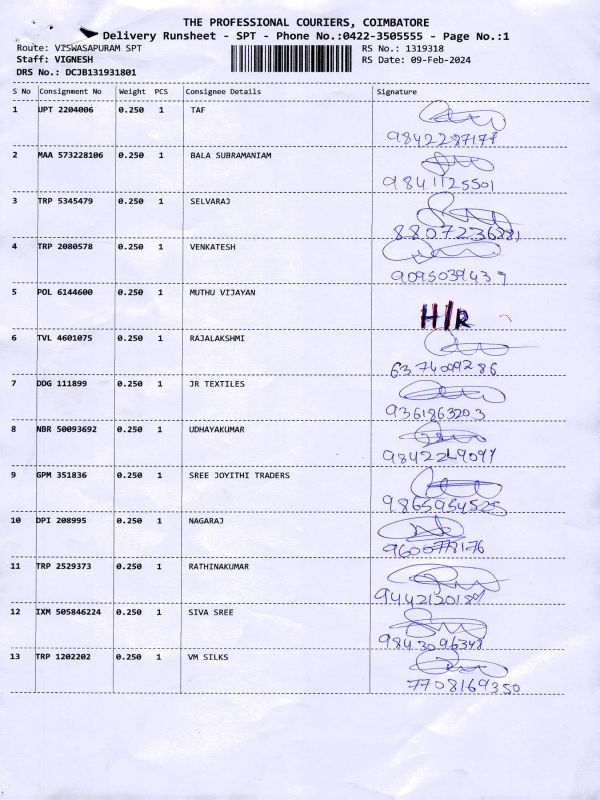 THE PROFESSIONAL COURIERS, COIMBATORE
Delivery Runsheet - SPT - Phone No.:0422-3505555 - Page No.:1
Route: VISWASAPURAM SPT RS No.: 1319318
Staff: VIGNESH RS Date: 09-Feb-2024
DRS No.: DCJB131931801
S No Consignment No Weight PCS Consignee Details Signature
1 UPT 2204006 0.250 1 TAF
9842287178
2 MAA 573228106 0.250 1 BALA SUBRAMANIAM
9841125501
3 TRP 5345479 0.250 1 SELVARAJ
8807236881
4 TRP 2080578 0.250 1 VENKATESH
9095039439
5 POL 6144600 0.250 1 MUTHU VIJAYAN
H/R
6 TVL 4601075 0.250 1 RAJALAKSHMI
7 DDG 111899 0.250 1 JR TEXTILES
9361863203
8 NBR 50093692 0.250 1 UDHAYAKUMAR
9 GPM 351836 0.250 1 SREE JOYITHI TRADERS
9865954525
10 DPI 208995 0.250 1 NAGARAJ
9600778176
11 TRP 2529373 0.250 1 RATHINAKUMAR
12 IXM 505846224 0.250 1 SIVA SREE
9843096348
13 TRP 1202202 0.250 1 VM SILKS
7708169350